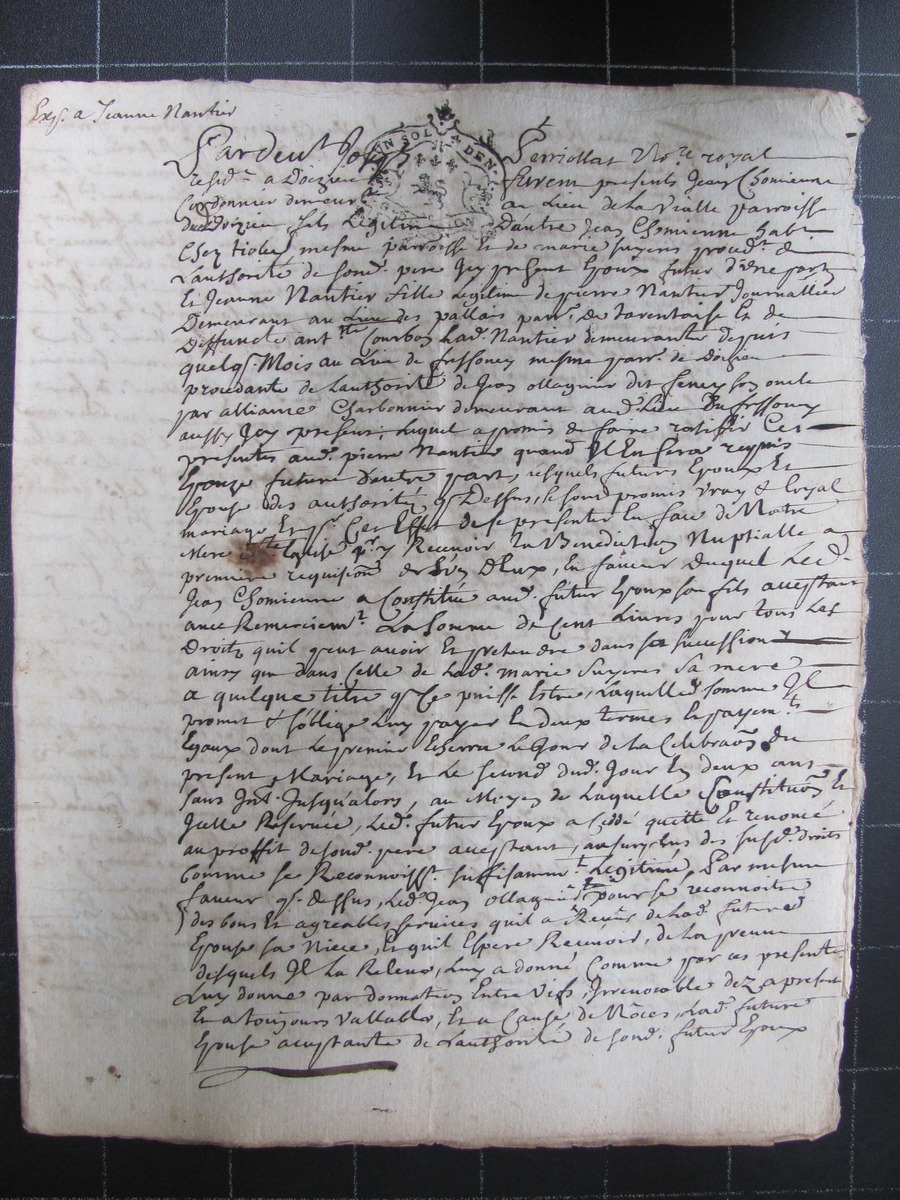 Exp. a Jeanne Nantier
Pardevt Jose Perriollat No.re royal
resid.t a Doizieu furent presents Jean Chomienne
Cordonnier demeurt au Lieu de La Vialle parroisse
dud Doizieu fils Legitime D'autre Jean Chomienne habt
Chez tiolet mesme parroisse Et de marie suyeres proced.t de
L'authorité de sond. pere Icy present Epoux futur d'une part
Et Jeanne Nantier fille Legitime de pierre Nantier Journallier
Demeurant au Lieu des pallais parr. de tarentaise Et de
Deffuncte ant.tte Courbon lad. Nantier demeurante depuis
quelq. Mois au Lieu de fressoney mesme parr. de doizieu
procedante de L'authorité de Jean ollagnier dit feney son oncle
par alliance Charbonnier demeurant aud. Lieu Du fressoney
aussy Icy present, Lequel a promis de faire ratiffier Ces
presentes aud. pierre Nantier quand Il En sera requis
Epouze future d'autre part, lesquels futurs Epoux Et
Epouse des authorités q. Dessus, se sont promis vray & Loyal
mariage Et p.r Cet Effet de se presenter En face de Notre
Mere Ste Eglise p.r y Recevoir La Benediction Nuptialle a
premiere requision de L'un D'Eux, En faveur Duquel Led.
Jean Chomienne a Constitué aud. futur Epoux son fils acceptant
avec Remerciem.t La somme de Cent Livres pour tous Les
Droits quil peut avoir Et pretendre dans sa succession
ainsy que dans Celle de Lad. marie Suyeres Sa mere
a quelque titre q. Ce puisse Estre, Laquelled. somme Il
promet & s'oblige Luy payer En deux termes Et payem.ts
Egaux dont Le premier Echerra Le Jour de La Celebraon du
present Mariage, Et Le Second dud. Jour En deux ans
sans Int. Jusqu'alors, au Moyen de Laquelle Constituon Et
Icelle Reservée, Led. futur Epoux a Cedé quitté Et renoncé
au proffit de sond. pere acceptant, au surplus des susd. droits
Comme se Reconnoiss.t suffisamm.t Legitimé, Par mesme
faveur q. dessus, Led. Jean ollagnier pour se reconnoitre
des bons Et agreables services quil a Receus de Lad. future
Epouse sa Niece, Et quil Espere Recevoir, de La preuve
desquels Il La Releve, Luy a donné Comme par ces presentes
Luy donne par donnation Entre Vifs, Irrevocable dez a present
Et a toujours vallable, Et a Cause de Nôces, Lad. future
Epouse acceptante de L'authorité de sond. futur Epoux